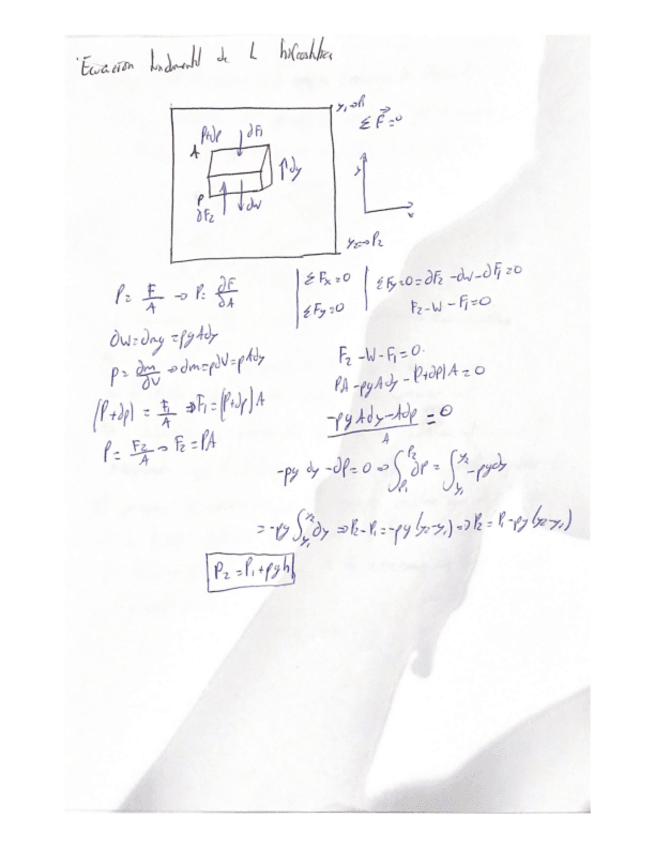 Ecuación fundamental de la hidrostática
y₁→P₁
Σ F⃗ = 0
P+dp ∂F₁
A
↑dy
P
∂F₂ ↓dw
y
x
y₂→P₂
P = F/A → P = ∂F/∂A
ΣFx = 0
ΣFy = 0
ΣFy = 0 = ∂F₂ - dw - ∂F₁ = 0
F₂ - W - F₁ = 0
∂w = ∂mg = ρg A dy
ρ = ∂m/∂V → dm = ρdV = ρAdy
(P+dp) = F₁/A ⇒ F₁ = (P+dp)A
P = F₂/A → F₂ = PA
F₂ - W - F₁ = 0.
PA - ρg A dy - (P+dp)A = 0
-ρg A dy - A dp / A = 0
-ρg dy - ∂P = 0 ⇒ ∫P₁P₂ ∂P = ∫y₁y₂ -ρg dy
= -ρg ∫y₁y₂ ∂y ⇒ P₂ - P₁ = -ρg (y₂-y₁) ⇒ P₂ = P₁ - ρg (y₂-y₁)
P₂ = P₁ + ρgh